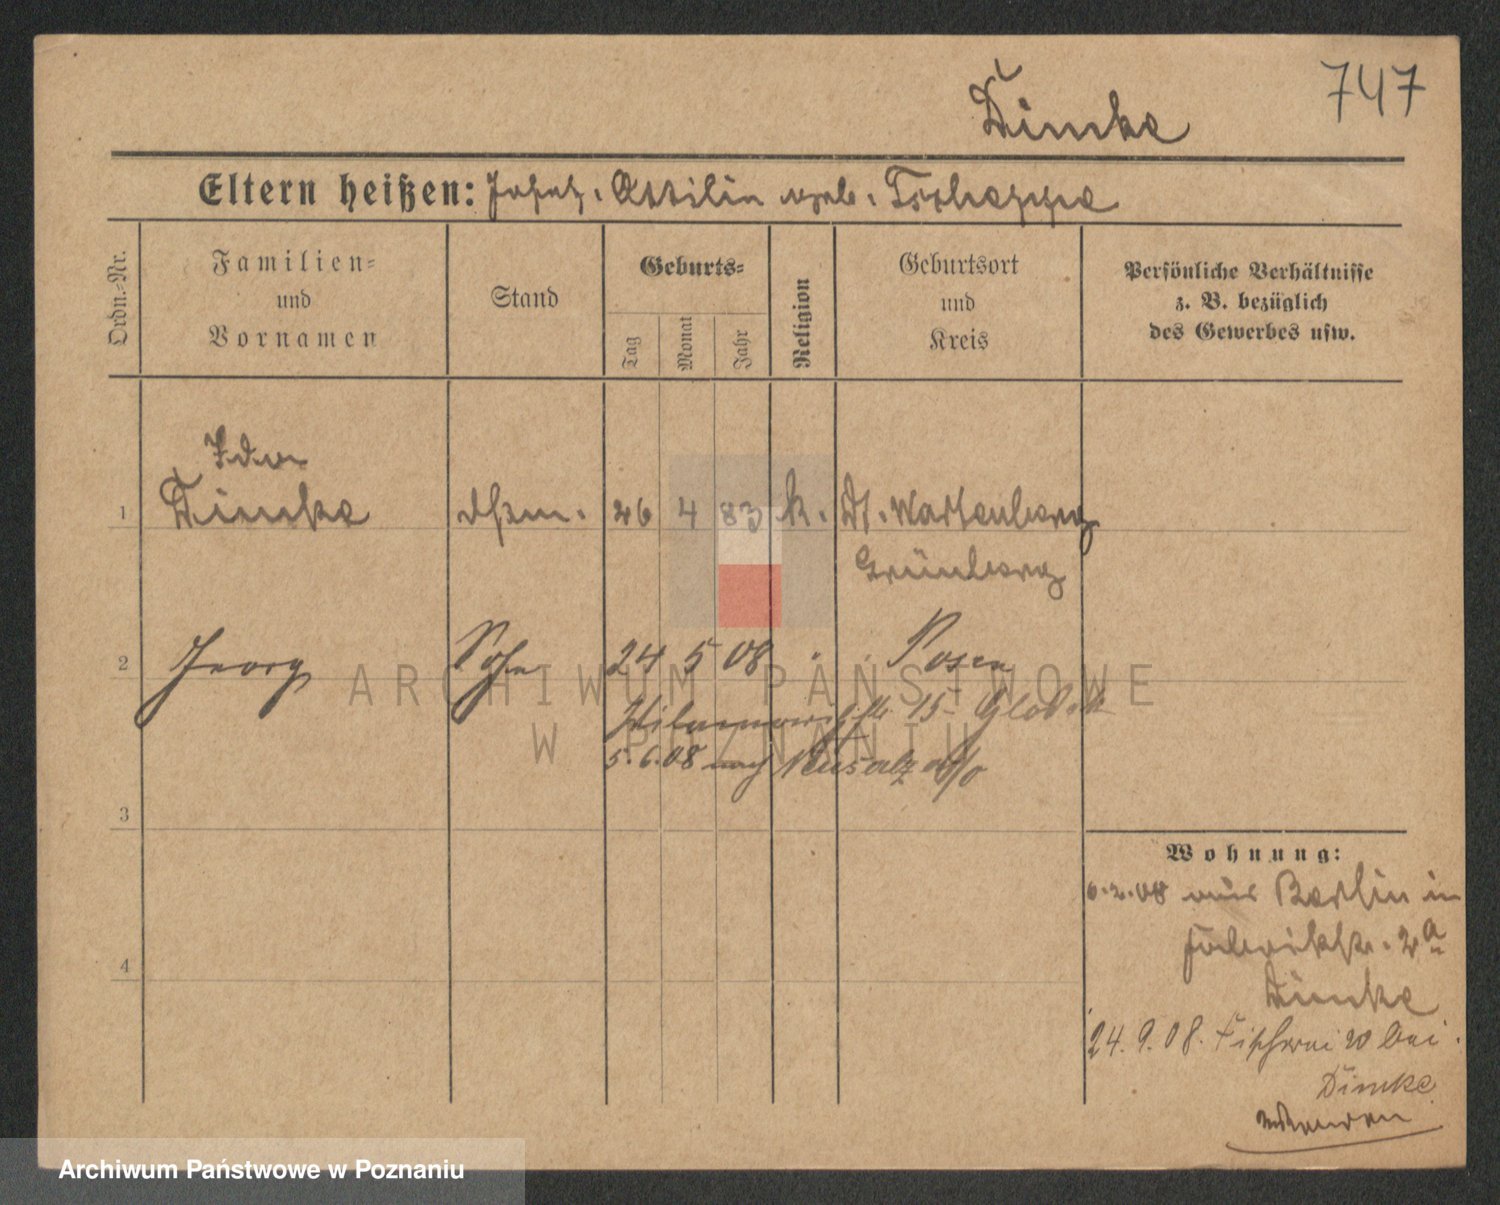 747
Dimke
Eltern heißen: Josef, Ottilie geb. Tscheppe
Ordn.-Nr.
Familien-
und
Vornamen
Stand
Geburts-
Tag
Monat
Jahr
Religion
Geburtsort
und
Kreis
Persönliche Verhältnisse
z. B. bezüglich
des Gewerbes usw.
Ida
1 Dimke 26 4 83 k. Dt. Wartenberg
Grünberg
2 Georg Sohn 24 5 08 Posen
15
5.6.08 nach Neusalz a/o
3
4
Wohnung:
6.2.08 aus Berlin in
Fabrikstr. 2a
Dimke
24.9.08. Fischerei 20 bei
Dimke
ARCHIWUM PAŃSTWOWE
W POZNANIU
Archiwum Państwowe w Poznaniu